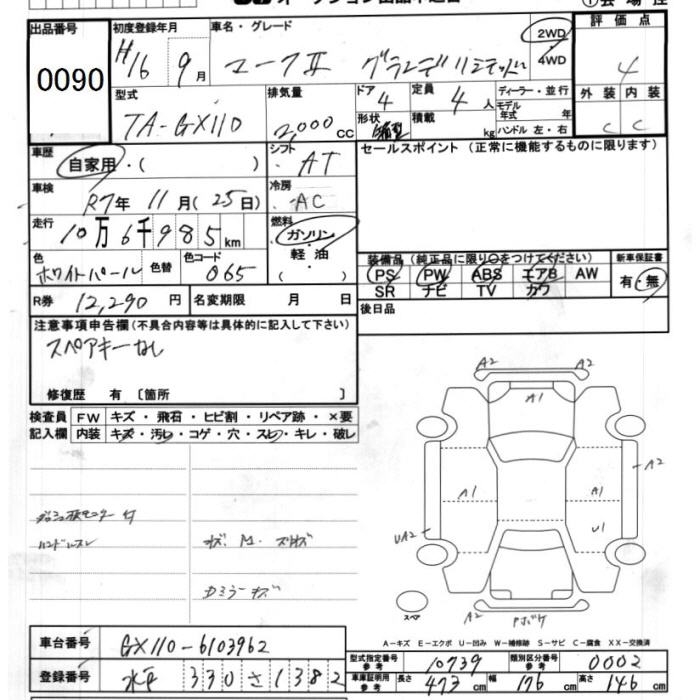 出品番号
0090
初度登録年月
H16年 9月
車名・グレード
マークⅡ グランデリミテッド
2WD
4WD
評価点
4
外装 内装
C C
型式
TA-GX110
排気量
2,000cc
ドア
4
定員
4人
形状
積載
kg
ディーラー・並行
モデル年式 年
ハンドル 左・右
車歴
自家用・( )
シフト
AT
セールスポイント (正常に機能するものに限ります)
車検
R7年 11月(25日)
冷房
AC
走行
10万6千985km
燃料
ガソリン
軽油
( )
色
ホワイトパール
色替
色コード
065
装備品 (純正品に限り○をつけてください)
PS PW ABS エアB AW
SR ナビ TV カワ
新車保証書
有・無
R券 12,290円
名変期限 月 日
後日品
注意事項申告欄(不具合内容等は具体的に記入して下さい)
スペアキーなし
修復歴 有〔箇所 〕
検査員記入欄
FW キズ・飛石・ヒビ割・リペア跡・×要
内装 キズ・汚れ・コゲ・穴・スレ・キレ・破レ
ハンドルスレ
A2 A2
A1
A2
A1 A1
UA2 U1
A2 A2
スペア
A-キズ E-エクボ U-凹み W-補修跡 S-サビ C-腐食 XX-交換済
車台番号 GX110-6103962
登録番号 水戸 330 さ 1382
型式指定番号 参考 10739
類別区分番号 参考 0002
車庫証明用 参考 長さ 473cm 幅 176cm 高さ 146cm